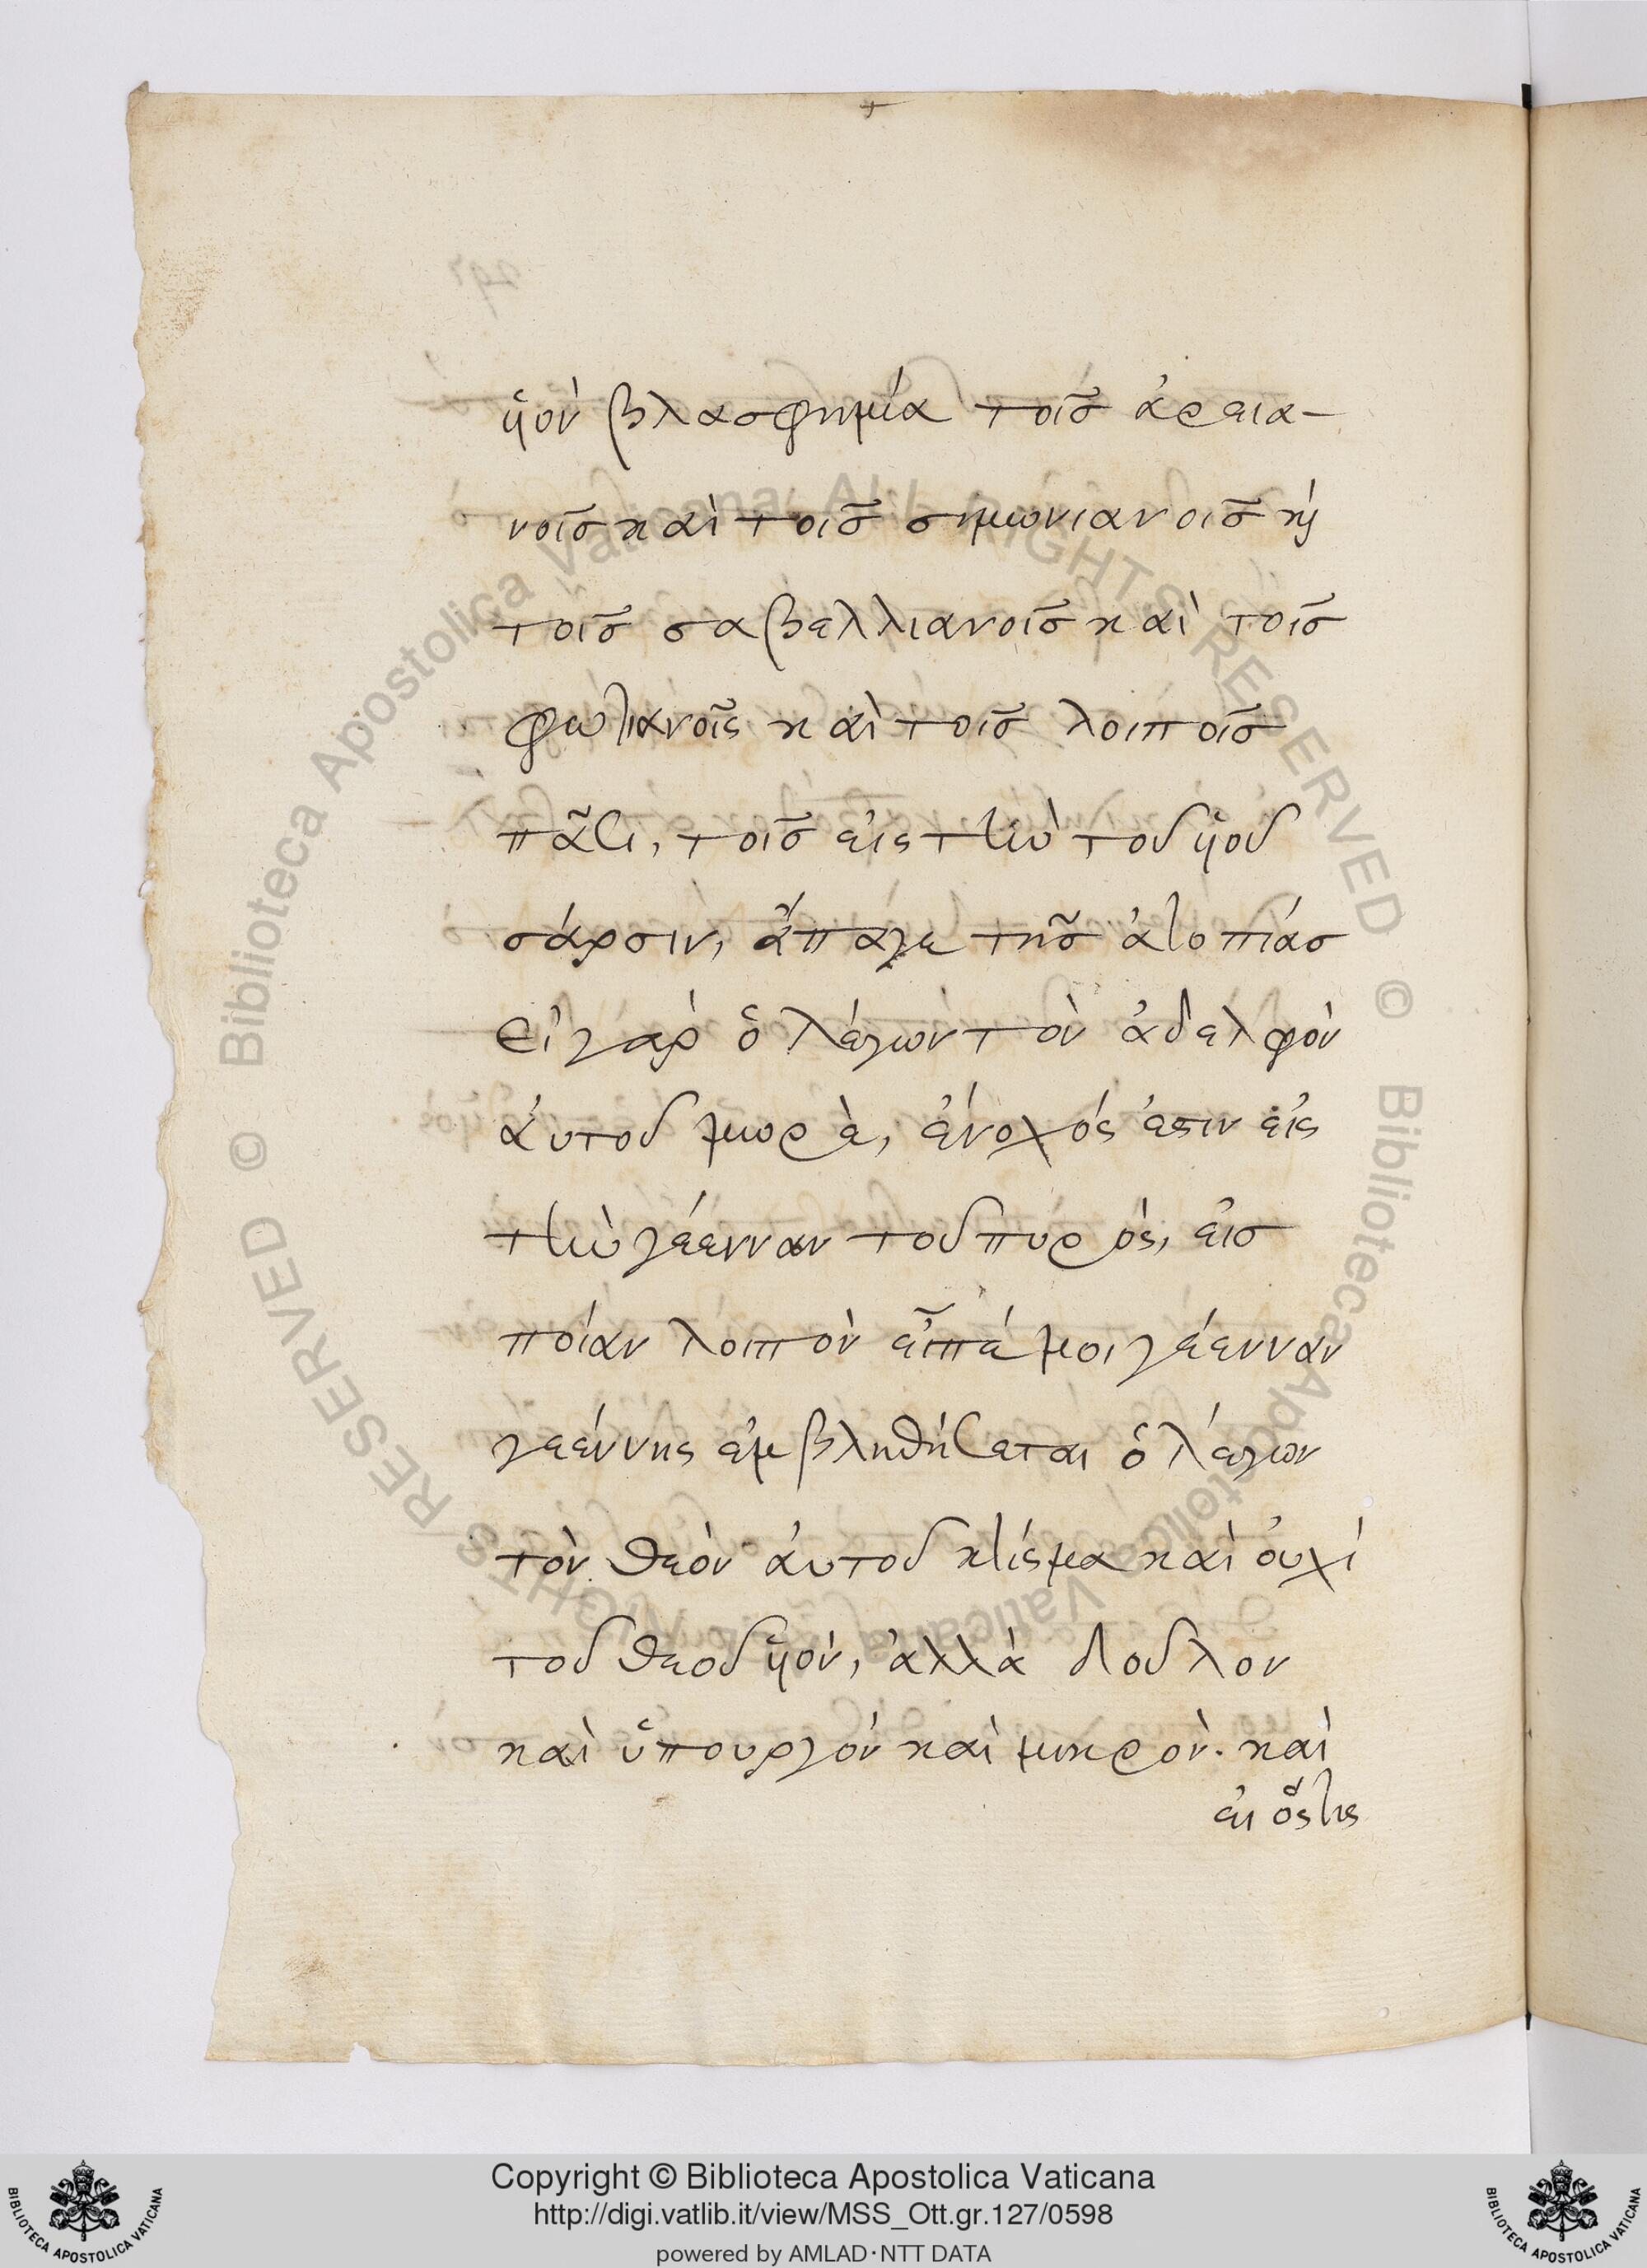 ὑὸν βλασφημία τοῖς ἀρεια-
νοῖς καὶ τοῖς σημωνιανοῖς καὶ
τοῖς σαβελλιανοῖς καὶ τοῖς
φωτιανοῖς καὶ τοῖς λοιποῖς
πᾶσι, τοῖς εἰς τὴν τοῦ ὑοῦ
σάρσιν, ἄπαγε τῆς ἀτοπίας
Εἰ γὰρ ὁ λέγων τὸν ἀδελφὸν
ἀυτοῦ μωρὲ, ἐνοχός ἐστιν εἰς
τὴν γέενναν τοῦ πυρὸς, εἰς
ποίαν λοιπὸν εἶπέ μοι γέενναν
γεέννης ἐμβληθήσεται ὁ λέγων
τὸν θεὸν ἀυτοῦ κτίσμα καὶ ὀυχί
τοῦ θεοῦ ὑὸν, ἀλλὰ δοῦλον
καὶ ὑπουργὸν καὶ μικρὸν. καὶ
εἰ ὅστις
© Biblioteca Apostolica Vaticana ALL RIGHTS RESERVED © Biblioteca Apostolica Vaticana ALL RIGHTS RESERVED
Copyright © Biblioteca Apostolica Vaticana
http://digi.vatlib.it/view/MSS_Ott.gr.127/0598
powered by AMLAD·NTT DATA
BIBLIOTECA APOSTOLICA VATICANA
BIBLIOTECA APOSTOLICA VATICANA